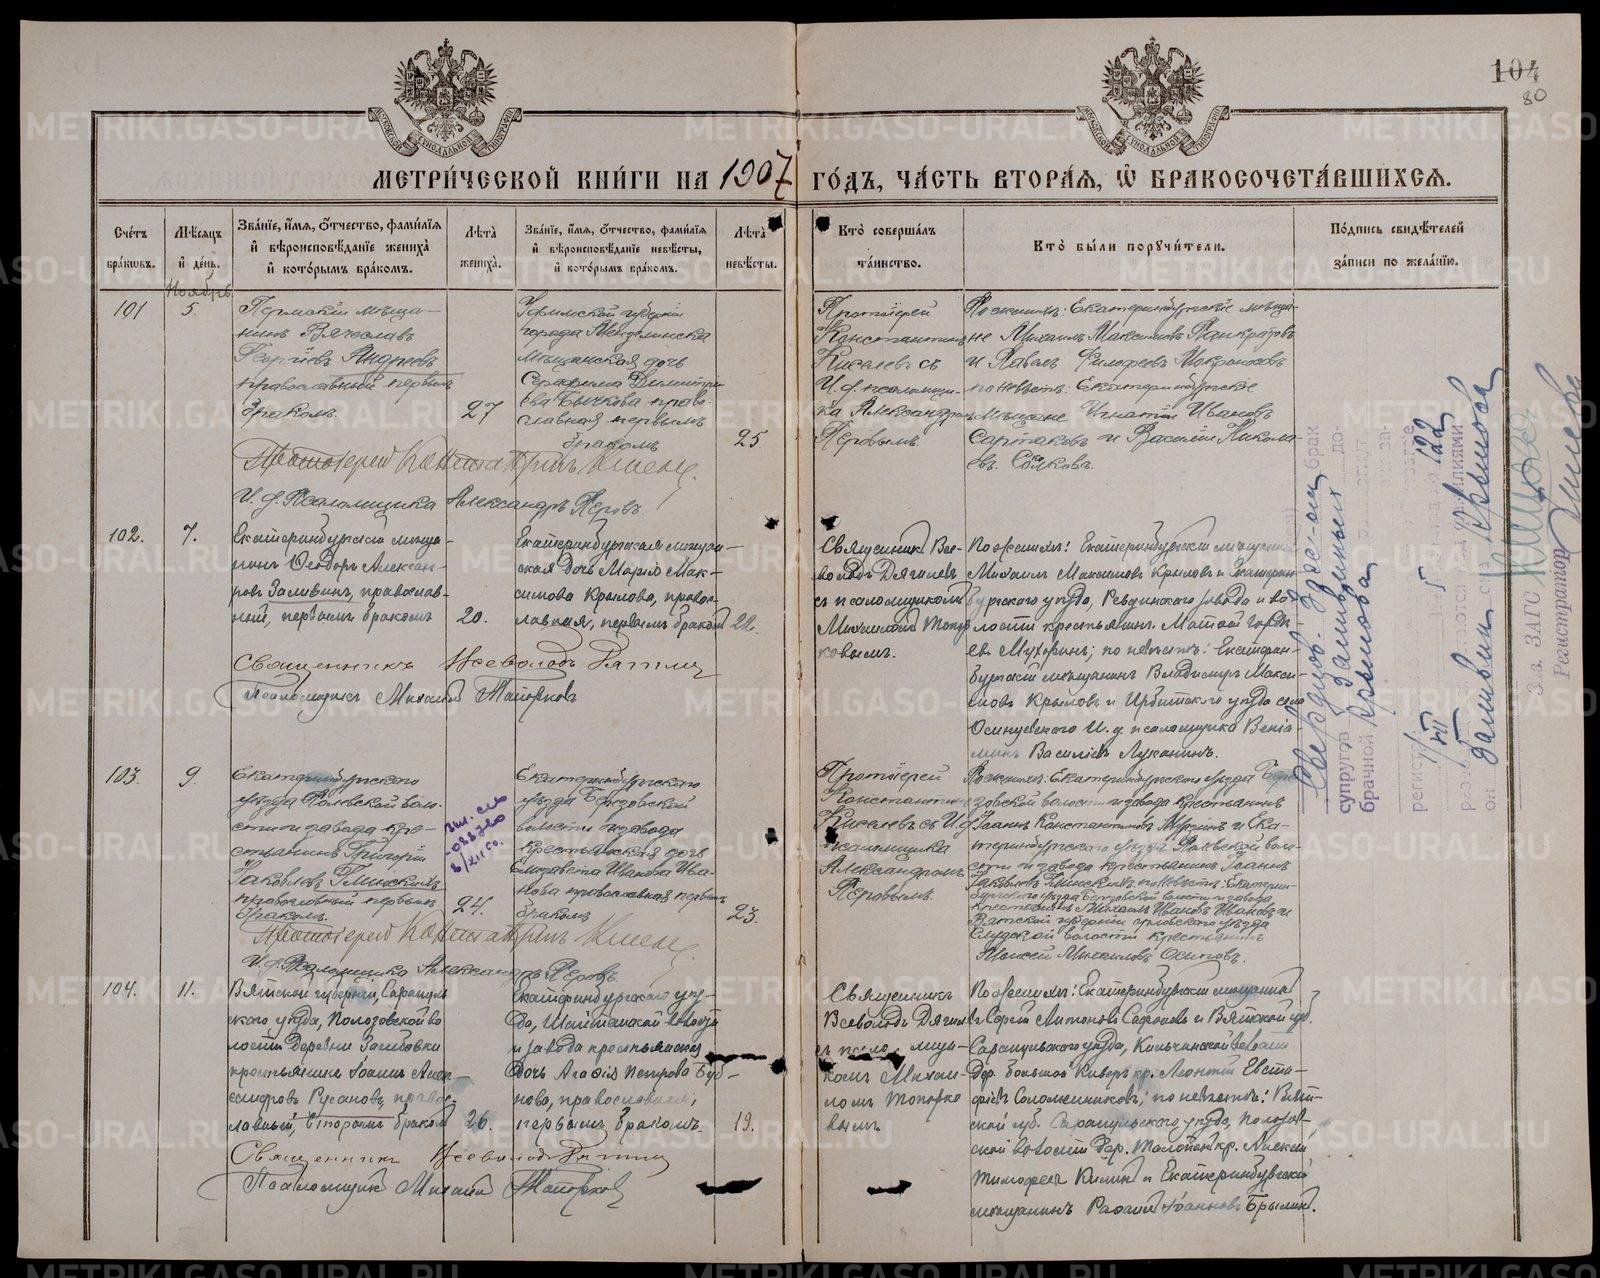 104
80
МЕТРИ́ЧЕСКОЙ КНИ́ГИ НА 1907
ГО́ДЪ, ЧА́СТЬ ВТОРА́Я, Ѽ БРАКОСОЧЕТА́ВШИХСЯ.
Сче́тъ бра́кѡвъ.
Мѣ́сяцъ и҆ де́нь.
Зва́нїе, и҆́мя, ѻ҆́тчество, фами́лїя и҆ вѣроисповѣ́данїе жениха̀ и҆ кото́рымъ бра́комъ.
Лѣ́та жениха̀.
Зва́нїе, и҆́мя, ѻ҆́тчество, фами́лїя и҆ вѣроисповѣ́данїе невѣ́сты, и҆ кото́рымъ бра́комъ.
Лѣ́та невѣ́сты.
Кто̀ соверша́лъ та́инство.
Кто̀ бы́ли порꙋчи́тели.
По́дпись свидѣ́телей за́писи по жела́нїю.
Ноябрь
101
5.
Пермскій мѣща-
нинъ Вячеславъ
Георгіевъ Андреевъ
православный первымъ
бракомъ.
27
Уфимской губерніи
города Мензелинска
мѣщанская дочь
Серафима Димитрі-
ева Бычкова право-
славная первымъ
бракомъ
25
Протоіерей
Константинъ
Киселевъ съ
И. д. псаломщи-
ка Александромъ
Перовымъ.
По женихѣ: Екатеринбургскіе мѣща-
не Михаилъ Максимовъ Панкратовъ
и Павелъ Филофеевъ Мокроносов
по невѣстѣ: Екатеринбургскіе
мѣщане Игнатій Ивановъ
Сартаковъ и Василій Никола-
евъ
Протоіерей Константинъ Киселевъ
И. д. Псаломщика Александръ Перовъ.
102.
7.
Екатеринбургскій мѣща-
нинъ Ѳеодоръ Алексан-
ровъ Заливинъ, православ-
ный, первымъ бракомъ
20.
Екатеринбургская мѣщан-
ская дочь Марія Мак-
симова Крылова, право-
славная, первымъ бракомъ
22.
Священникъ Все-
володъ Дягилевъ
съ псаломщикомъ
Михаиломъ Топор-
ковымъ.
По женихѣ: Екатеринбургскій мѣщанинъ
Михаилъ Максимовъ Крыловъ и Екатерин-
бургскаго уѣзда, Ревдинского завода и во-
лости крестьянинъ Матѳей Горды-
евъ Мухоринъ; по невѣстѣ: Екатерин-
бургскій мѣщанинъ Владимиръ Макси-
мовъ Крыловъ и Ирбитского уѣзда села
Осинцевского И. д. псаломщика Веніа-
минъ Василіевъ Луканинъ.
Священникъ Всеволодъ Дягилевъ
Псаломщикъ Михаилъ Топорковъ
103.
9.
Екатеринбургского
уѣзда Полевской воло-
сти и завода кре-
стьянинъ Григорій
Іаковлевъ Глинскихъ
православный первымъ
бракомъ.
24.
Екатеринбургского
уѣзда Березовской
волости и завода
крестьянская дочь
Елизавета Иванова Ива-
нова православная первымъ
бракомъ
23.
Протоіерей
Константинъ
Киселевъ съ И. д.
псаломщика
Александромъ
Перовымъ.
По женихѣ: Екатеринбургского уѣзда Бере-
зовской волости и завода крестьянинъ
Іоаннъ Константиновъ и Ека-
теринбургского уѣзда Полевской воло-
сти и завода крестьянинъ Іоаннъ
Іаковлевъ Глинскихъ по невѣстѣ: Екатерин-
бургского уѣзда Березовской волости и завода
крестьянинъ Михаилъ Ивановъ Ивановъ и
Вятской губерніи орловского уѣзда
Слудской волости крестьянинъ
Моисей Михаиловъ Осиповъ.
Протоіерей Константинъ Киселевъ
И. д. Псаломщика Александръ Перовъ.
104.
11.
Вятской губерніи, Сарапуль-
ского уѣзда, Полозовской во-
лости деревни
крестьянинъ Іоаннъ Алек-
сандровъ Русановъ, право-
славный, вторымъ бракомъ
26.
Екатеринбургского уѣз-
да, Шайтанской волости
и завода крестьянская
дочь Агафія Петрова Буб-
нова, православная,
первымъ бракомъ.
19.
Священникъ
Всеволодъ Дягилевъ
съ псаломщи-
комъ Михаи-
ломъ Топорко-
вымъ.
По женихѣ: Екатеринбургскій мѣщанинъ
Сергій Антоновъ Сафоновъ и Вятской губ.
Сарапульского уѣзда, Кильчинской волости
дер. Большой Киваръ кр. Леонтій Евста-
фіевъ Соломенниковъ; по невѣстѣ: Вят-
ской губ. Сарапульского уѣзда, Полозов-
ской волости дер. кр. Алексій
Тимофеевъ Килинъ и Екатеринбургскій
мѣщанинъ Рафаилъ Іоанновъ Брылинъ.
Священникъ Всеволодъ Дягилевъ
Псаломщикъ Михаилъ Топорковъ
брак
супругов Заливиных до-
брачной Крылова
регистр
Зав. ЗАГС
Регистратор
METRIKI.GASO-URAL.RU